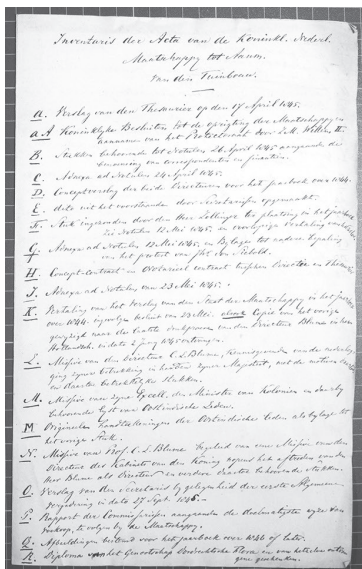 Inventaris der Acta van de Koninkl. Nederl.
Maatschappy tot Aanm.
van den Tuinbouw.
a. Verslag van den Thesaurier op den 17 April 1845.
a.A Koninklyke Besluiten tot de oprigting der Maatschappy en
aanname van het Protectoraat door Z.M. Willem II.
B. Stukken behoorende tot Notulen 26 April 1845 aangaande de
benoeming van correspondenten en finantien.
C. Annexa ad Notulen 24 April 1845.
D. Conceptverslag der beide Directeuren voor het jaarboek over 1844.
E. dito uit het voorstaande door opgemaakt.
F. Stuk ingezonden door den Heer Zollinger ter plaatsing in het jaarboek
Zie Notulen 12 Mei 1845, en
G. Annexa ad Notulen 12 Mei 1845, en Bylagen tot nadere
van het protest van Jhr. von Siebold.
H. Concept-contract en contract tusschen Directie en
J. Annexa ad Notulen van 23 Mei 1845.
K. Vertaling van het Verslag van den Staat der Maatschappy in het jaarboek
over 1844 ingevolge besluit van 23 Mei, alsook Copie van het vorige
gewyzigd naar de laatste van den Directeur Blume in het
Hollandsch, in dato 2 Juny 1845 ontvangen.
L. Missive van den Directeur C.L. Blume, kennisgevende van de nederlegging
zyner betrekking in handen zyner Majesteit, met de motiven
en daartoe betrekkelyke stukken.
M. Missive van zyne Excell. den Minister van Kolonien en daarby
behoorende lyst van Ostindische Leden.
M Originele handteekeningen der Ostindische leden als bylage tot
het vorige stuk.
N. Missive van Prof. C.L. Blume begeleid van eene Missive van den
Directeur des Kabinets van den Koning nopens het aftreden van den
Heer Blume als Directeur en verdere daartoe behoorende stukken.
O. Verslag van den secretaris by gelegenheid der eerste Algemeene
Vergadering in dato 27 Sept. 1845.
P. Rapport der Commissarissen aangaande de doelmatigste wyze van
verkoop, te volgen by de Maatschappy.
Q. Afbeeldingen bestemd voor het jaarboek over 1846 of later.
R. Diploma van het Genootschap Dordrechtsche Flora en
gene geschenken.